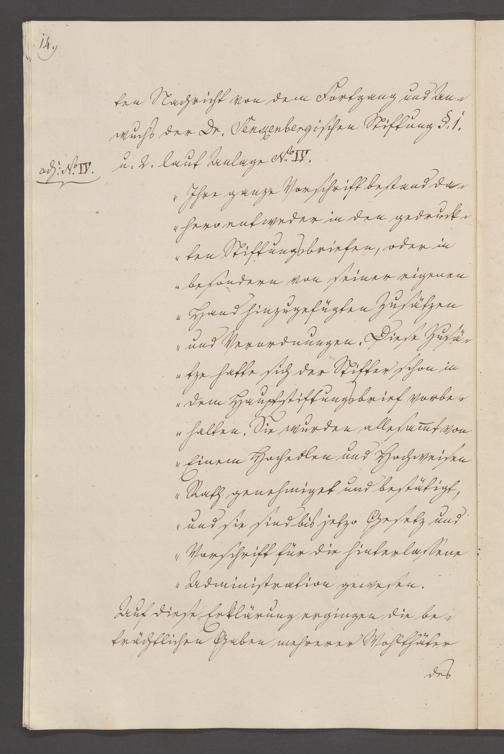 14.
ten Nachricht von dem Fortgang und An-
wuchs der Dr. Senckenbergischen Stiftung §. 1.
adj: No. IV.
u. 2. laut Anlage No. IV.
„ Ihre ganze Vorschrift bestand da-
„ hero entweder in den gedruck-
„ ten Stiftungsbriefen, oder in
„ besondern von seiner eigenen
„ Hand hinzugefügten Zusätzen
„ und Verordnungen. Diese Zusä-
„ tze hatte sich der Stifter schon in
„ dem Hauptstiftungsbrief vorbe-
„ halten. Sie wurden allesamt von
„ Einem Hochedlen und Hochweisen
„ Rath genehmiget und bestätigt,
„ und sie sind bis jetzo Gesetz und
„ Vorschrift für die hinterlassene
„ Administration gewesen.
Auf diese Erklärung ergingen die be-
trächtlichen Gaben mehrerer Wohlthäter
des